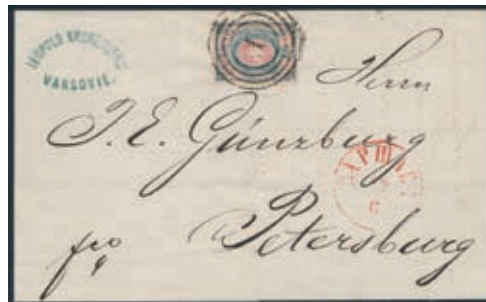 LEOPOLD KRONENBERG
VARSOVIE.
1
Herrn
J. E. Günzburg
Petersburg
fro